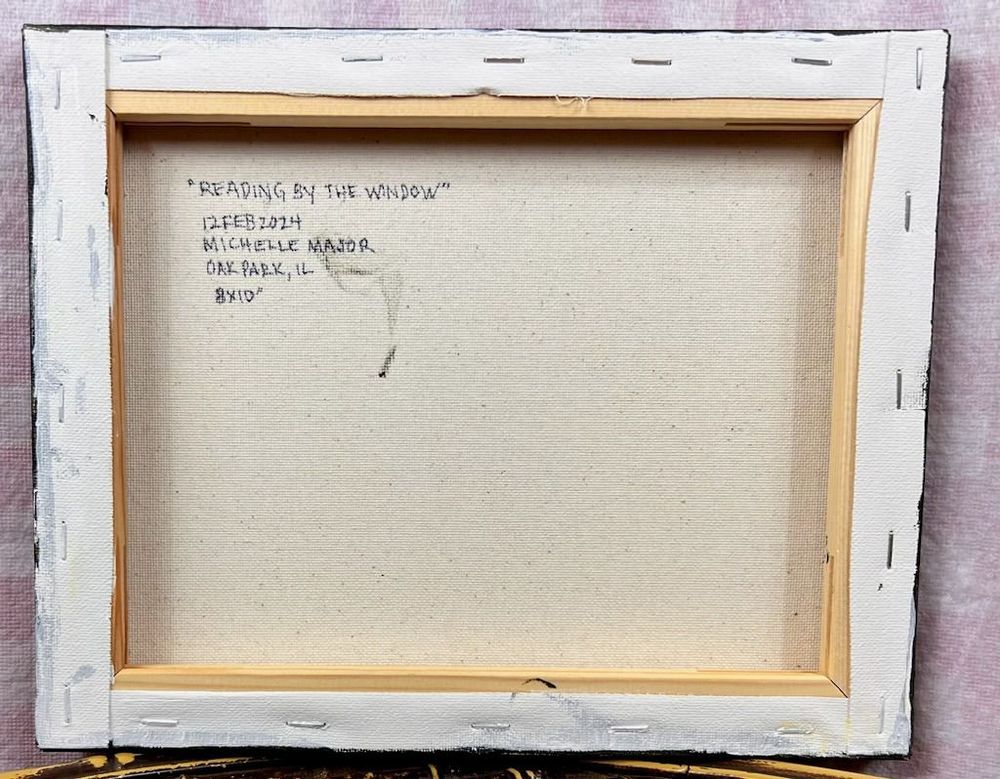 "READING BY THE WINDOW"
12FEB2024
MICHELLE MAJOR
OAK PARK, IL
8X10"